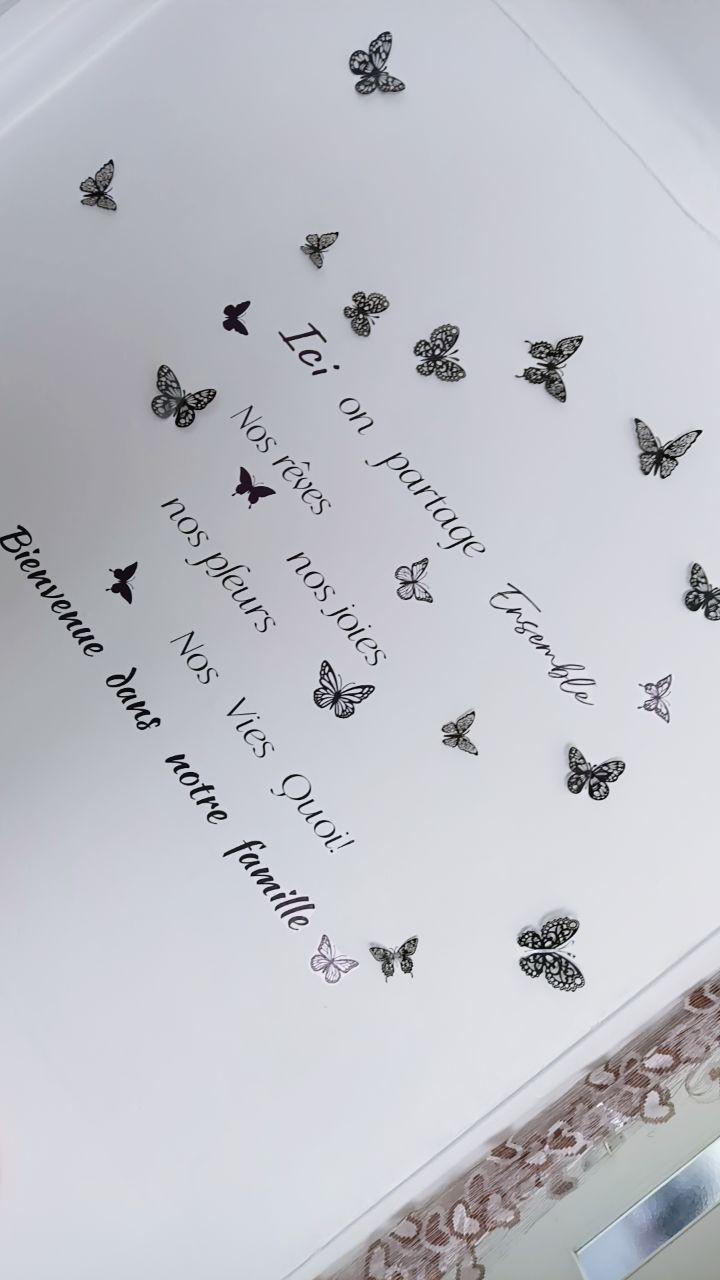 Ici on partage Ensemble
Nos rêves nos joies
nos pleurs
Nos Vies Quoi!
Bienvenue dans notre famille